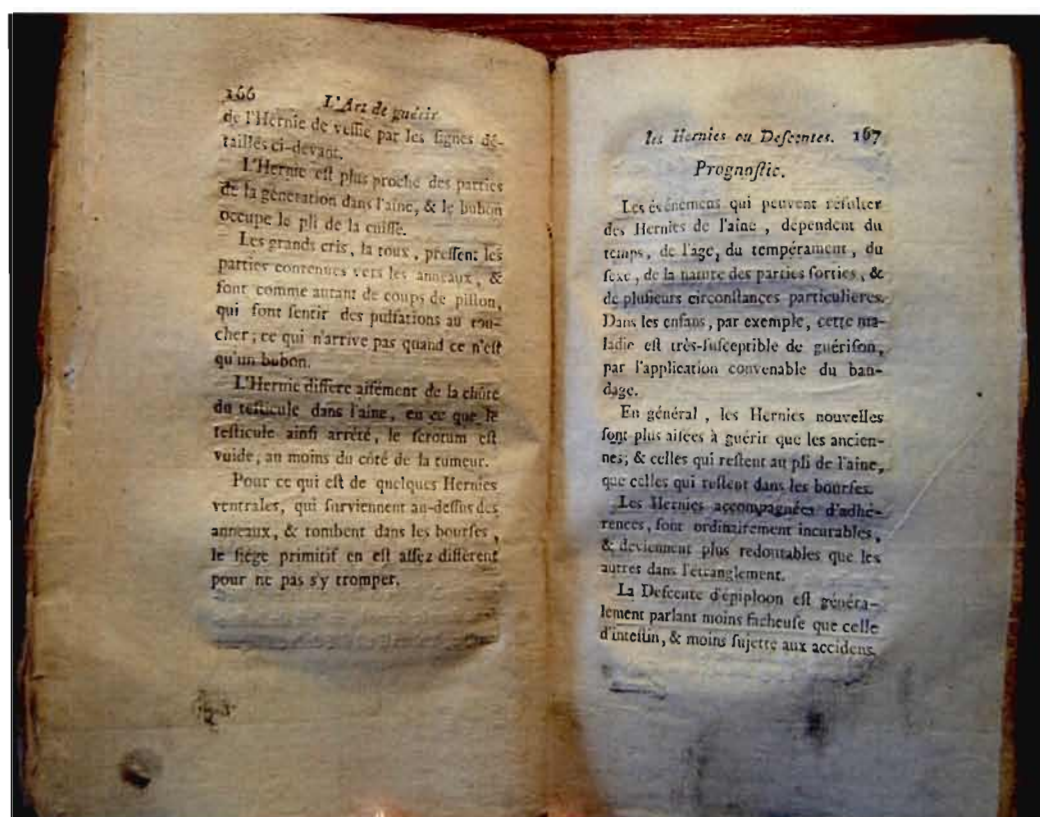 166 L'Art de guérir
de l'Hernie de vessie par les signes dé-
taillés ci-devant.
L'Hernie est plus proche des parties
de la génération dans l'aîne, & le bubon
occupe le pli de la cuisse.
Les grands cris, la toux, pressent les
parties contenues vers les anneaux, &
font comme autant de coups de piston,
qui font sentir des pulsations au tou-
cher; ce qui n'arrive pas quand ce n'est
qu'un bubon.
L'Hernie differe aisément de la chûte
du testicule dans l'aîne, en ce que le
testicule ainsi arrêté, le scrotum est
vuide, au moins du côté de la tumeur.
Pour ce qui est de quelques Hernies
ventrales, qui surviennent au-dessus des
anneaux, & tombent dans les bourses,
le siége primitif en est assez différent
pour ne pas s'y tromper.
les Hernies ou Descentes. 167
Prognostic.
Les événemens qui peuvent résulter
des Hernies de l'aîne, dépendent du
temps, de l'âge, du tempérament, du
sexe, de la nature des parties sorties, &
de plusieurs circonstances particulieres.
Dans les enfans, par exemple, cette ma-
ladie est très-susceptible de guérison,
par l'application convenable du ban-
dage.
En général, les Hernies nouvelles
sont plus aisées à guérir que les ancien-
nes; & celles qui restent au pli de l'aîne,
que celles qui restent dans les bourses.
Les Hernies accompagnées d'adhé-
rences, sont ordinairement incurables,
& deviennent plus redoutables que les
autres dans l'étranglement.
La Descente d'épiploon est généra-
lement parlant moins fâcheuse que celle
d'intestin, & moins sujette aux accidens.